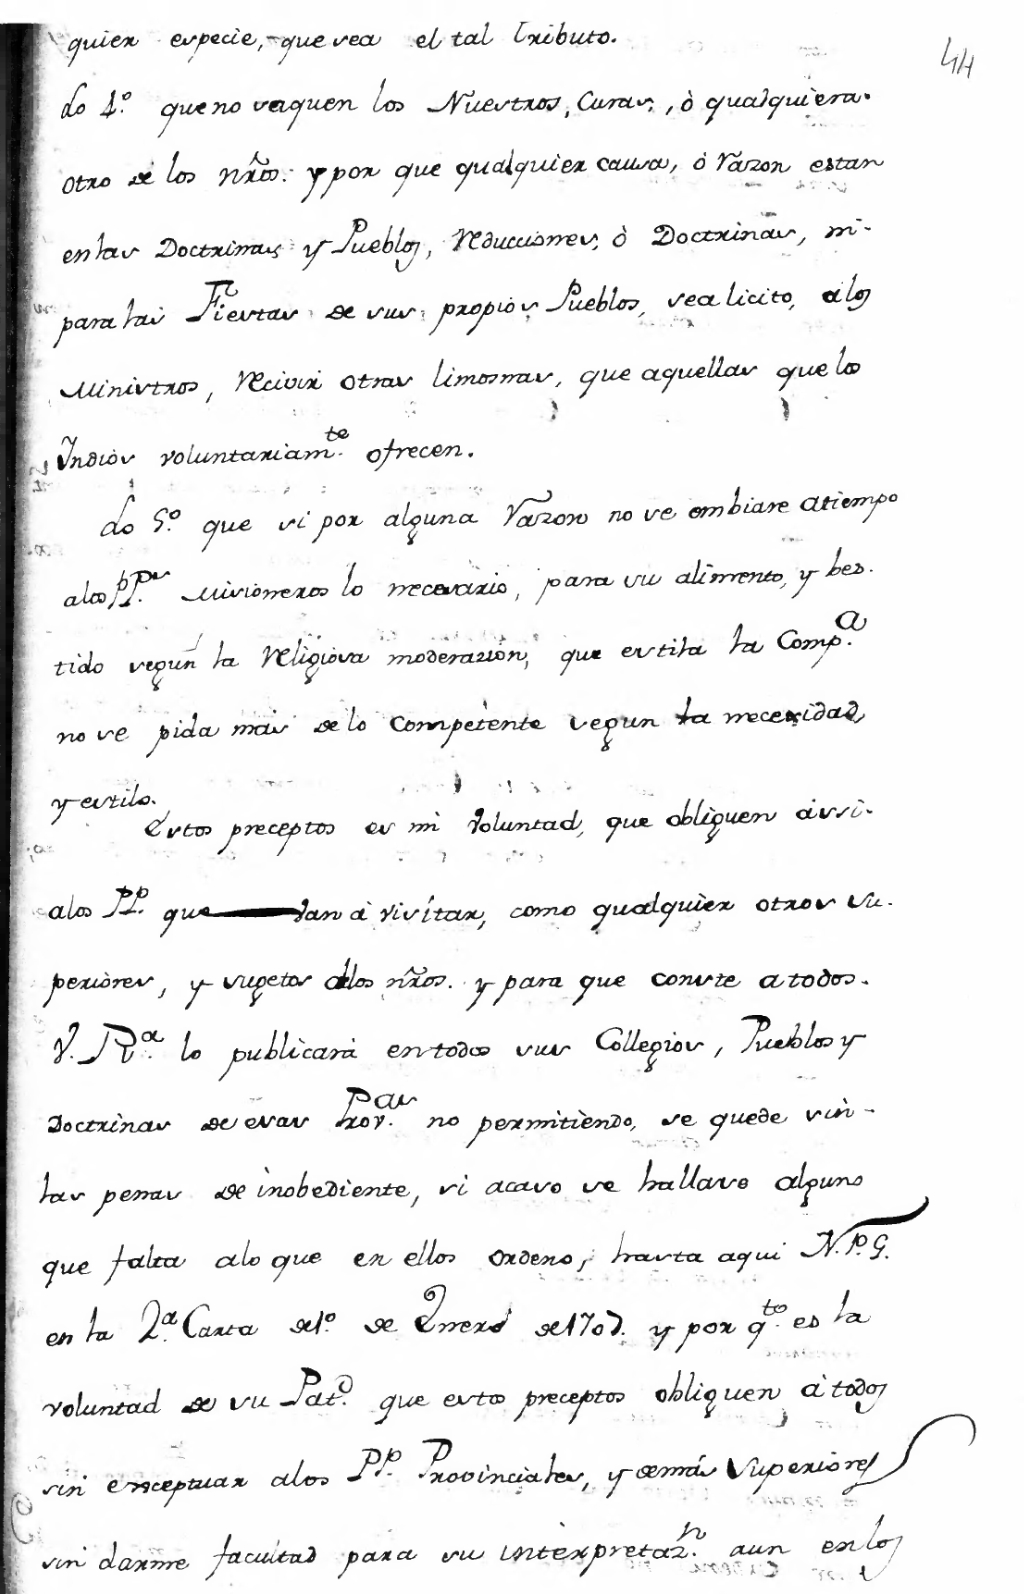 quier especie, que sea el tal tributo.
44
do 4.º que no saquen los Nuestros, Curas, ò qualquiera
otro de los nr̃os. y por que qualquier causa, ò razon estan
en las Doctrinas y Pueblos, reducciones, ò Doctrinas, ni-
para las Fiestas de sus propios Pueblos, sea licito, a los
Ministros, recivir otras limosnas, que aquellas que los
Indios voluntariam.te ofrecen.
do 5.º que si por alguna razon no se embiare a tiempo
alos PP.es Missioneros lo necesario, para su alimento, y bes-
tido segun la religiosa moderazion, que estila la Comp.a
no se pida mas de lo competente segun la necesidad,
y estilo.
Estos preceptos es mi voluntad, que obliguen assi-
alos PP. que van à visitar, como qualquier otros su-
periores, y sugetos de los nr̃os. y para que conste a todos.
V. R.a lo publicarà en todos sus Collegios, Pueblos y
Doctrinas de esas Prov.as no permitiendo, se quede sin-
las penas de inobediente, si acaso se hallase alguno
que falta alo que en ellos ordeno, hasta aqui N. P. G.
en la 2.a Carta de 1.º de Enero de 1707. y por q.to es la
voluntad de su Pat.d que estos preceptos obliguen à todos
sin exceptuar alos PP. Provinciales, y demás Superiores
sin darme facultad para su interpretaz.n aun en los